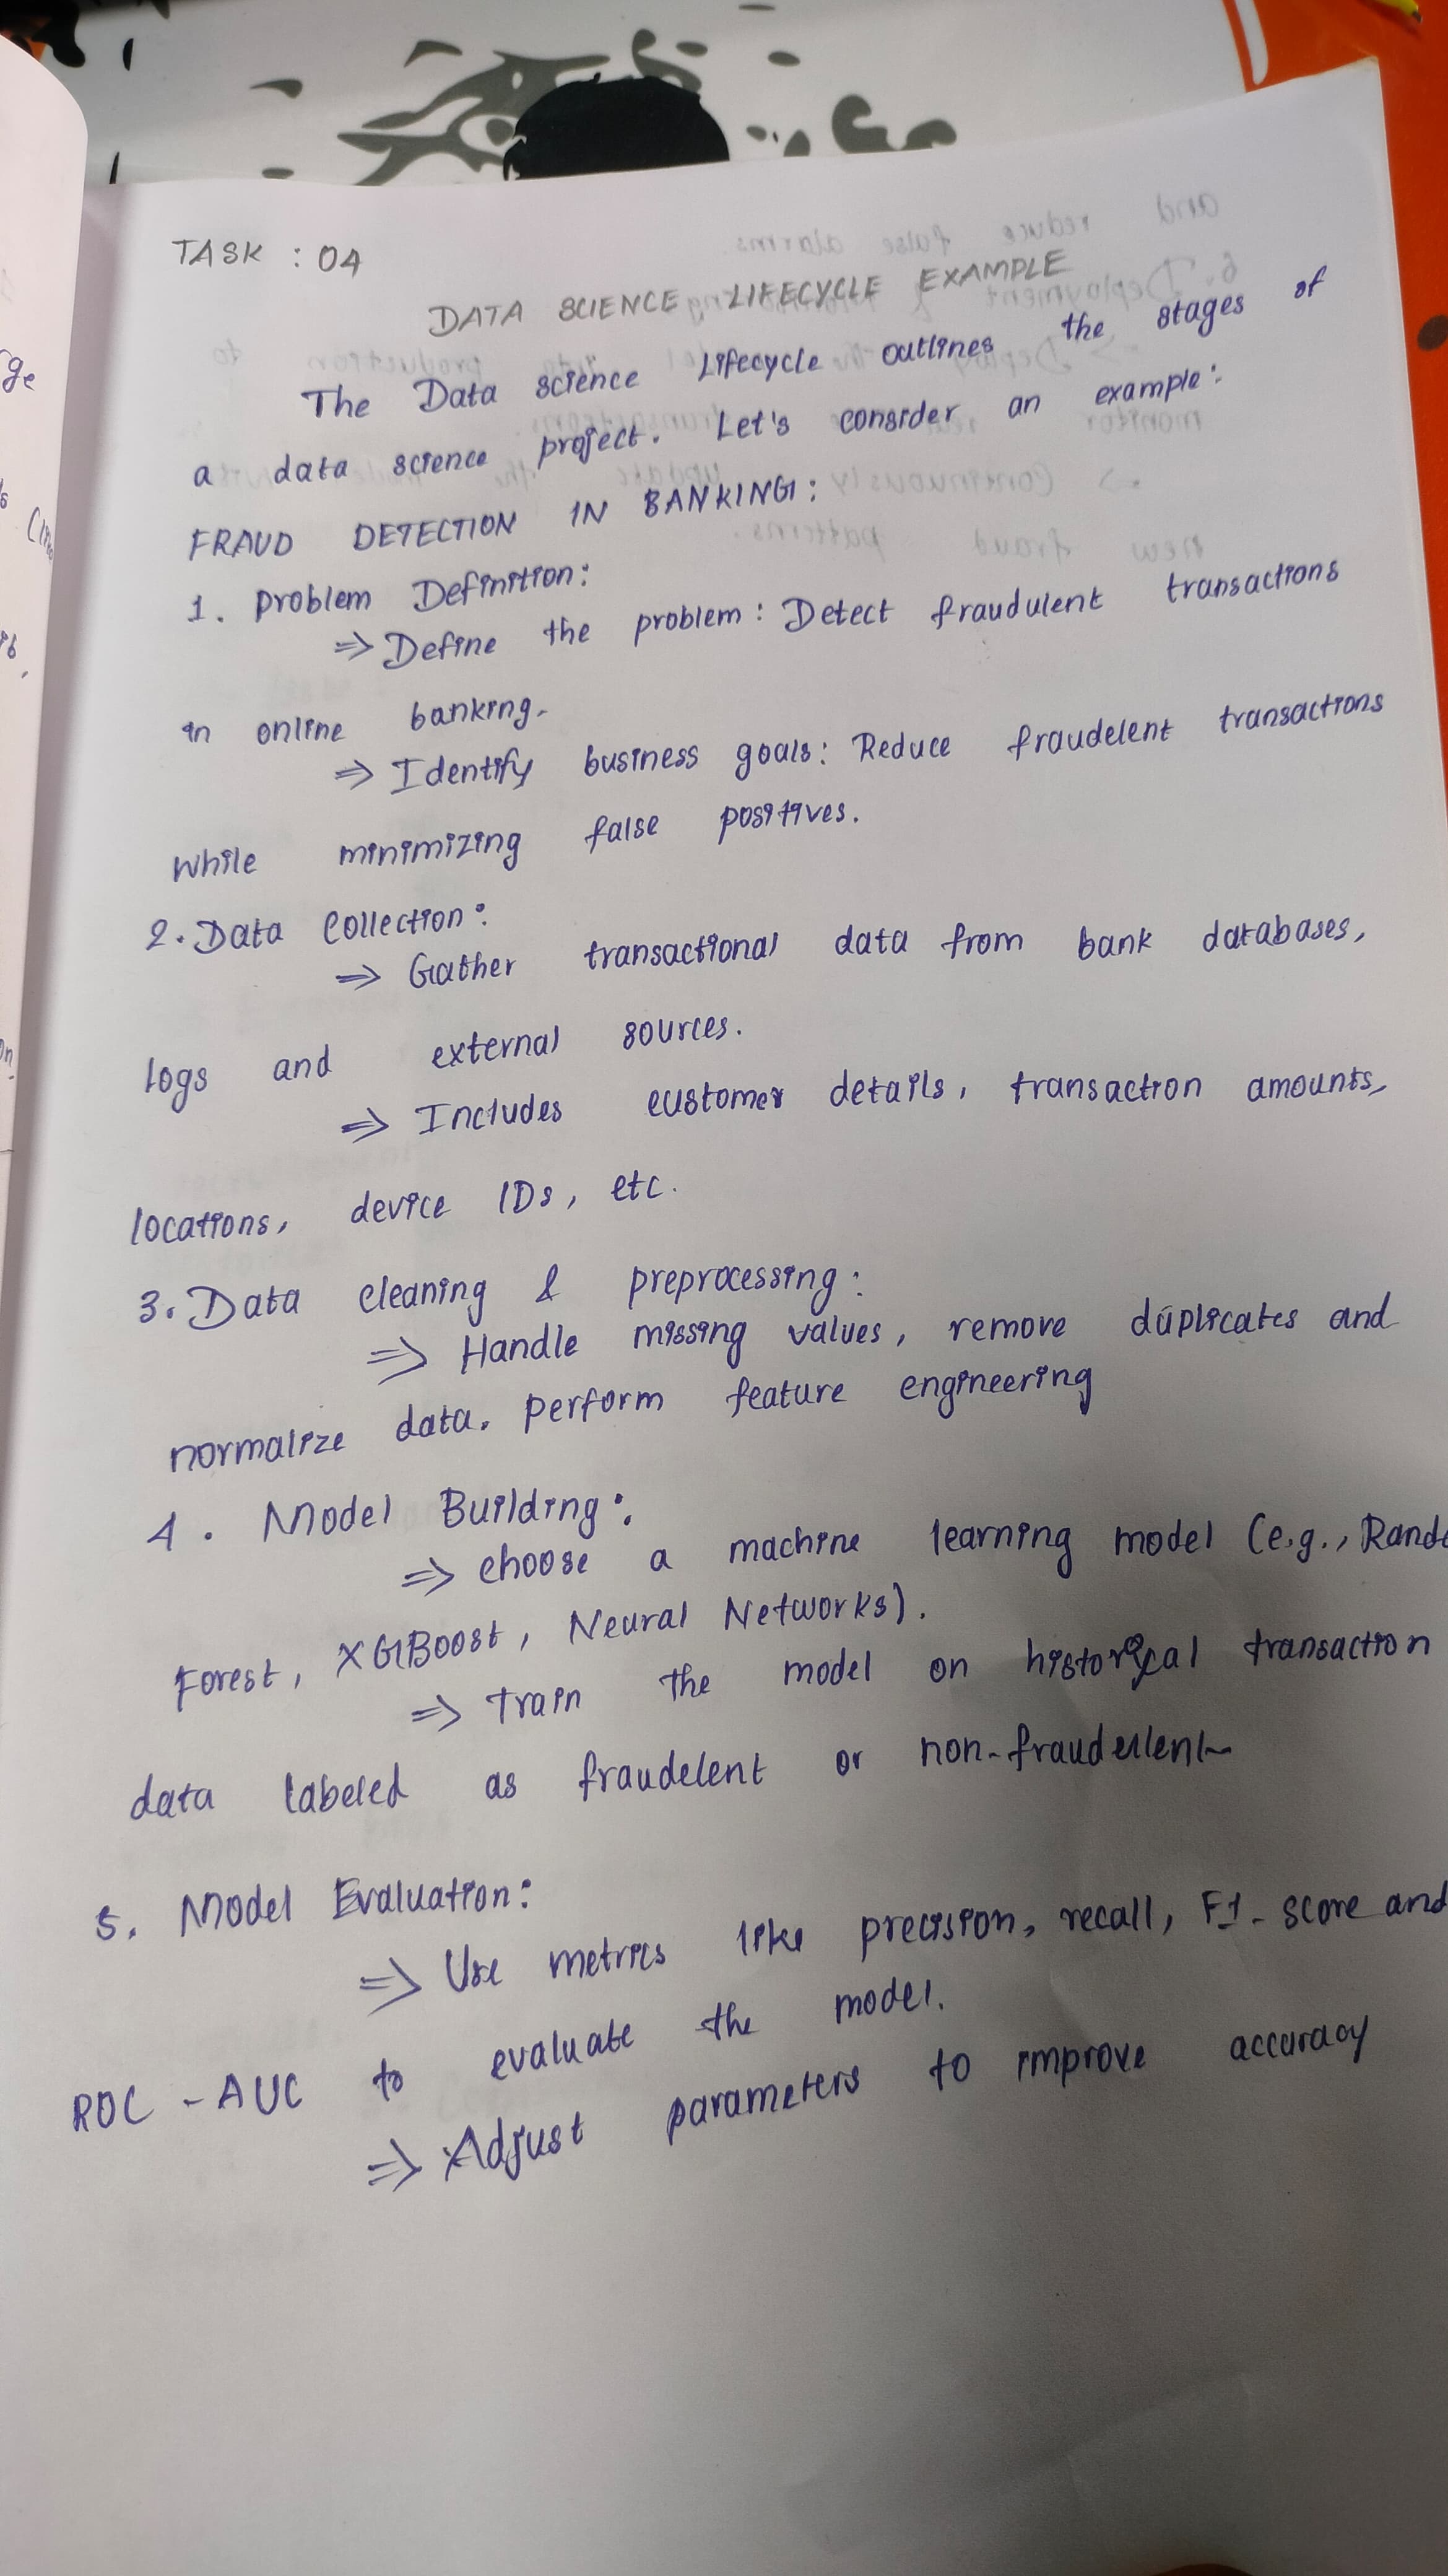 TASK : 04
DATA SCIENCE LIFECYCLE EXAMPLE
The Data science Lifecycle outlines the stages of
a data science project. Let's consider an example:
FRAUD DETECTION IN BANKING:
1. Problem Definition:
⇒ Define the problem: Detect fraudulent transactions
in online banking.
⇒ Identify business goals: Reduce fraudelent transactions
while minimizing false positives.
2. Data Collection:
⇒ Gather transactional data from bank databases,
logs and external sources.
⇒ Includes customer details, transaction amounts,
locations, device IDs, etc.
3. Data cleaning & preprocessing:
⇒ Handle missing values, remove duplicates and
normalize data. perform feature engineering
4. Model Building:
⇒ choose a machine learning model (e.g., Rando
Forest, XGBoost, Neural Networks).
⇒ Train the model on historical transaction
data labeled as fraudelent or non-fraudelent
5. Model Evaluation:
⇒ Use metrics like precision, recall, F1-score and
ROC-AUC to evaluate the model.
⇒ Adjust parameters to improve accuracy